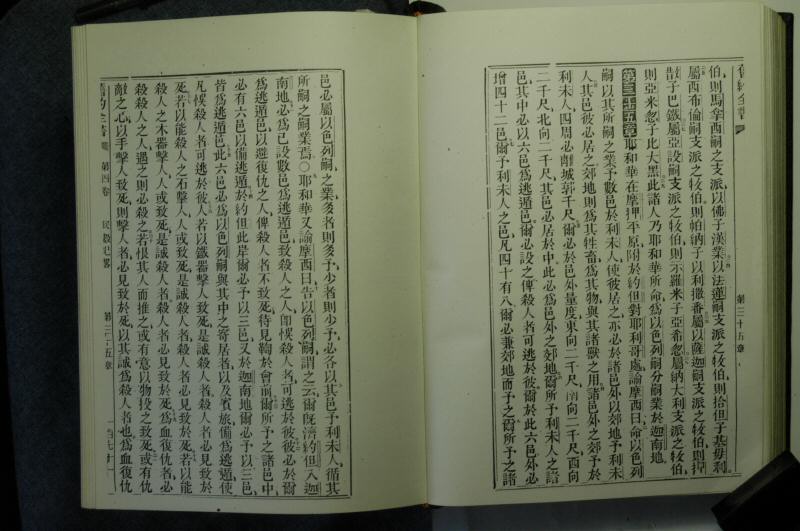 舊約全書
第三十五章
伯則馬拿西嗣支派之牧伯則以法蓮嗣支派之牧伯則
屬西布倫嗣支派之牧伯則帕納子以利撒番屬薩迦嗣支派之牧伯則
子巴鐵屬亞設嗣支派之牧伯則示羅米子亞希忽屬納大利支派之牧伯
則亞米忽子比大黑此諸人乃耶和華所命爲以色列嗣分嗣業於迦南地
第三十五章耶和華在摩押平原附於約但對耶利哥處諭摩西曰命以色列
嗣以其所嗣之業予數邑於利未人使彼居之亦必於諸邑外以郊地予利未
人其邑彼必居之郊地則爲其牲畜爲其物與其諸獸之用諸邑外之郊予於
利未人四周必離城郭千尺爾必於邑外量度東向二千尺南向二千尺西向
二千尺北向二千尺其邑必居於中此必爲邑外之郊地爾所予利未人之諸
邑其中必以六邑爲逃遁邑爾必設之俾殺人者可逃於彼爾於此六邑外必
增四十二邑爾予利未人之邑凡四十有八爾必兼郊地而予之爾所予之諸
邑必屬以色列嗣之業多者則多予少者則少予必各以其邑予利未人循其
所嗣之嗣業焉○耶和華又諭摩西曰告以色列嗣謂之云爾旣濟約但入迦
南地必爲已設數邑爲逃遁邑致殺人之人卽悞殺人者可逃於彼彼必於爾
爲逃遁邑以避復仇之人俾殺人者不致死待見鞫於會前爾所予之諸邑中
必有六邑以備逃遁於約但此岸爾必予以三邑又於迦南地爾必予以三邑
皆爲逃遁邑此六邑必爲以色列嗣與其中之寄居者以及賓旅備爲逃遁使
凡悞殺人者可逃於彼人若以鐵器擊人致死是誠殺人者殺人者必見致於
死若以能殺人之石擊人人或致死是誠殺人者殺人者必見致於死若以能
殺人之木器擊人人或致死是誠殺人者殺人者必見致於死爲血復仇者必
殺殺人之人遇之則必殺之若恨其人而推之或有意以物投之致死或有仇
敵之心以手擊人致死則擊人者必見致於死以其誠爲殺人者也爲血復仇
舊約全書 第四卷 民數紀畧 第三十五章